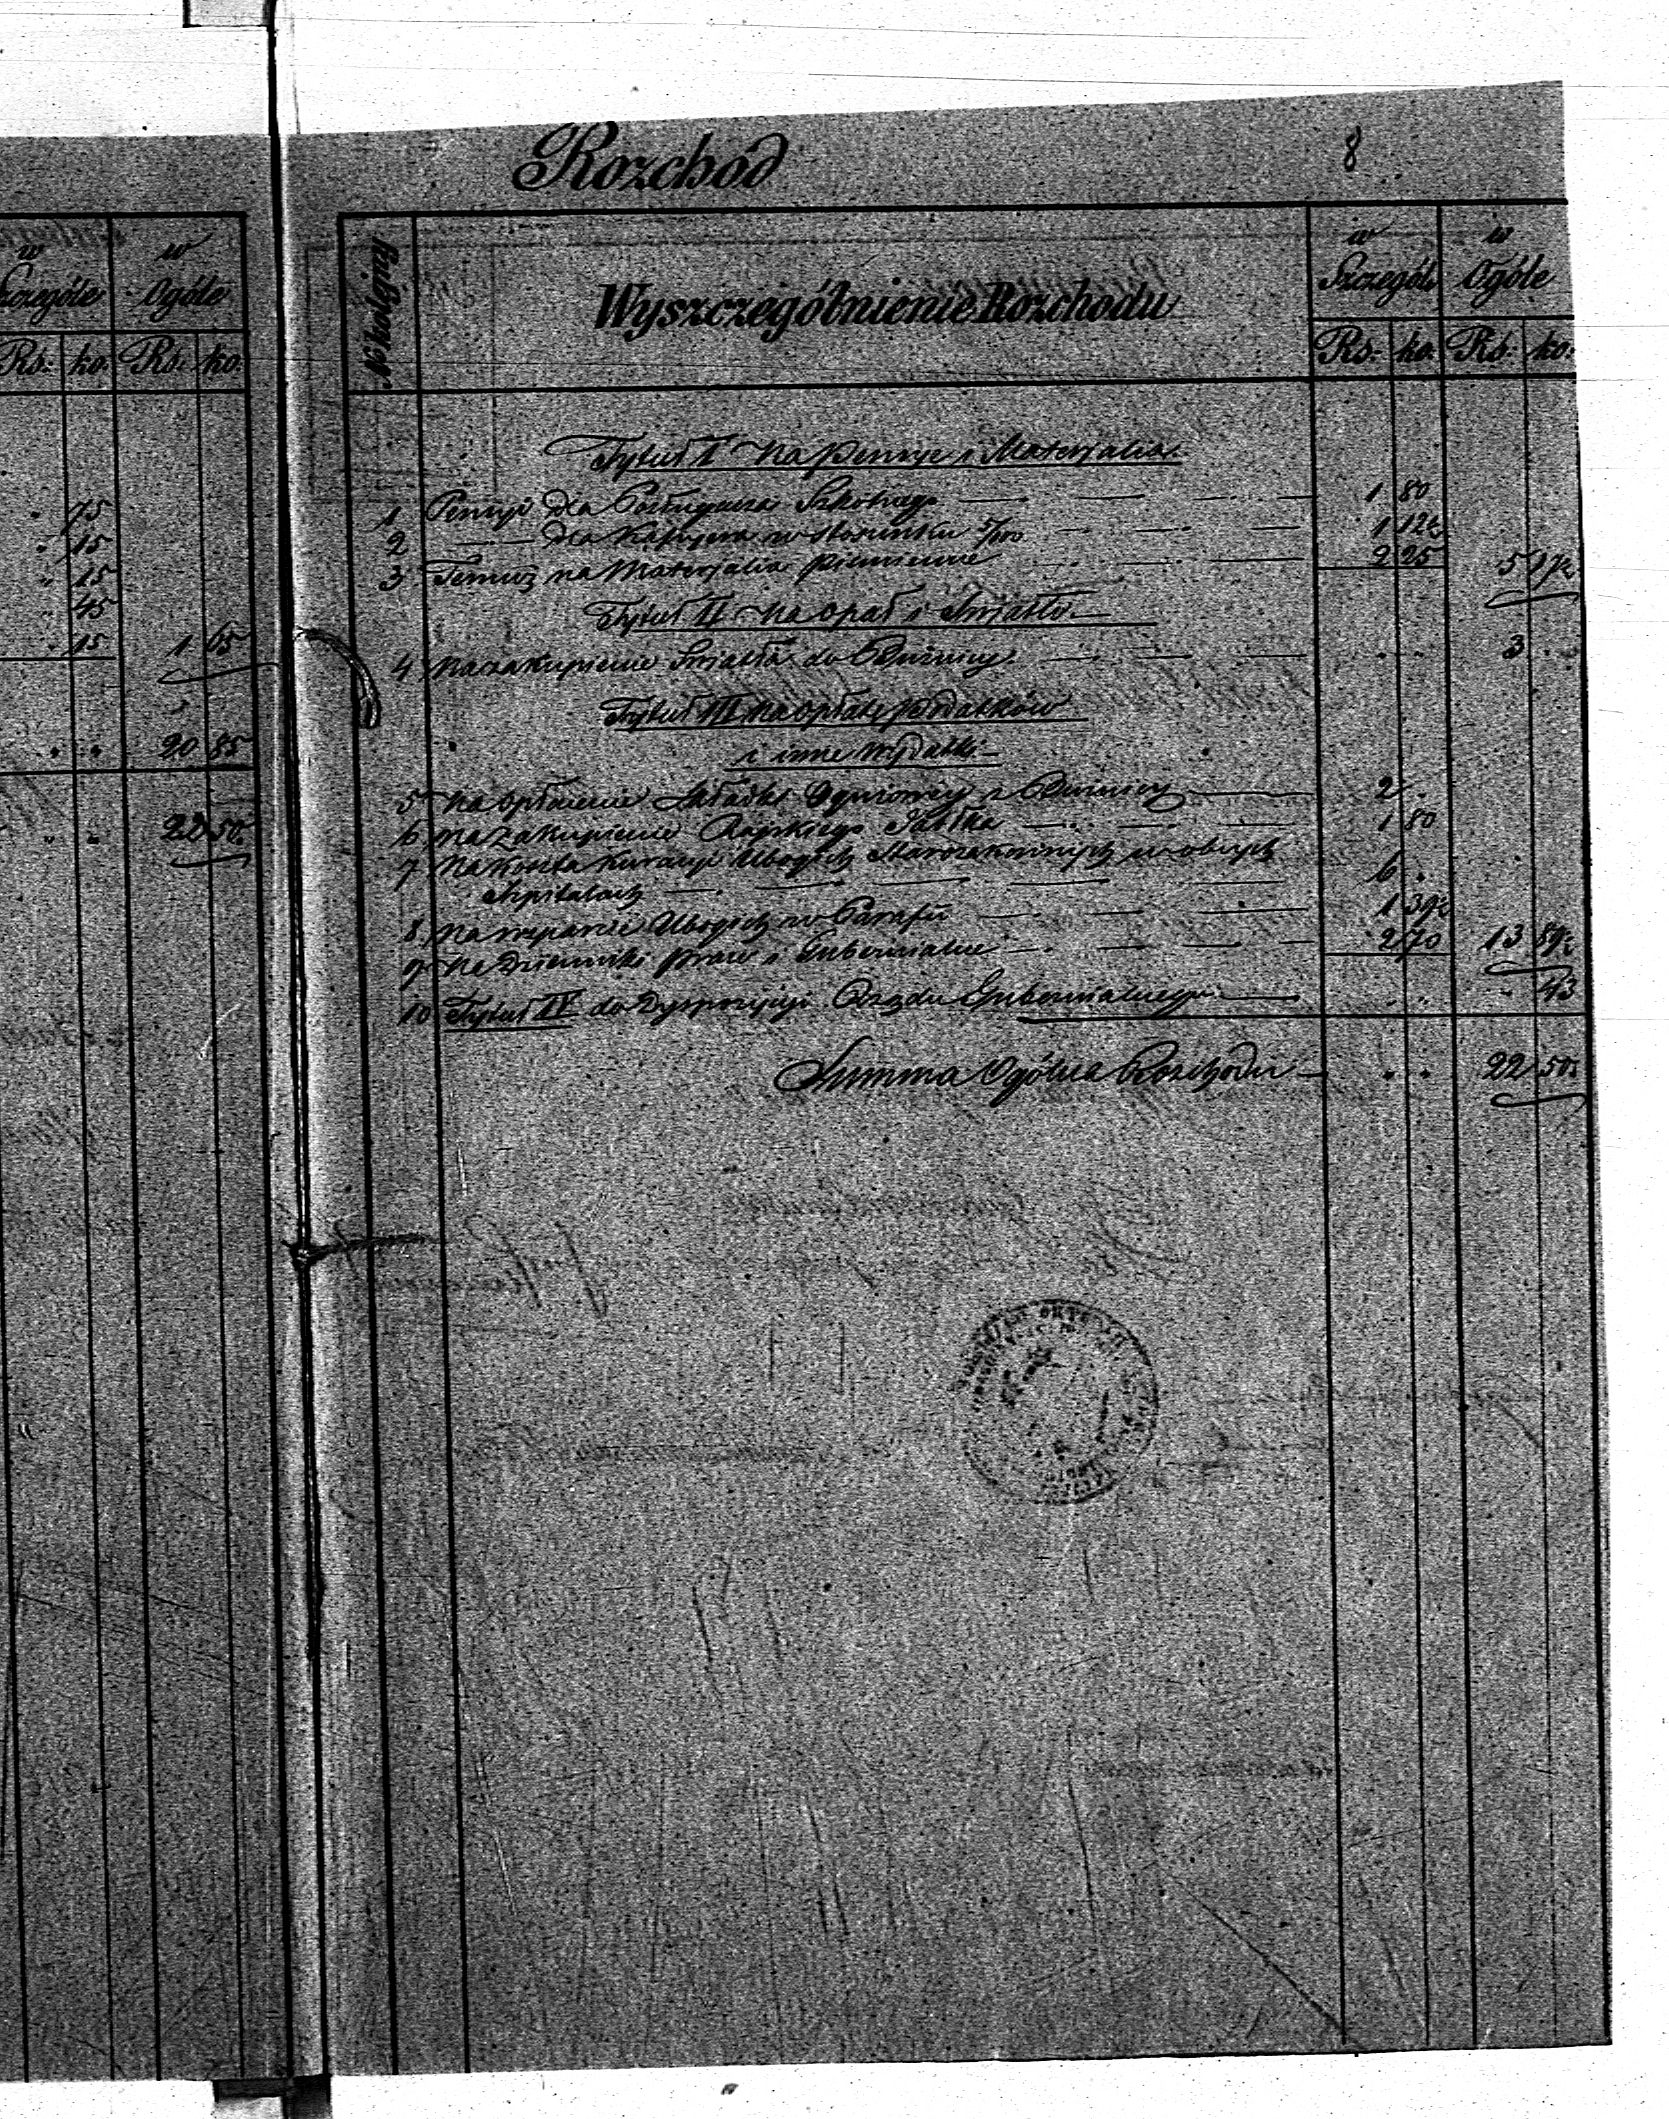 w Szczególe
w Ogóle
Rs. ko. Rs. ko.
75
15
15
45
15 1 65
20 85
22 50
Rozchód
8
№ kolejny
Wyszczególnienie Rozchodu
w Szczegól
w Ogóle
Rs. ko. Rs. ko.
Tytuł I Na pensye i Materjalia
1 Pensyi dla Posługacza Szkolnego 1 80
2 dla Kassyera w stosunku 5/100 1 12½
3 Temuż na Materjalia piśmienne 2 25 5 17½
Tytuł II Na opał i Światło
4 Na zakupienie Światła do Bóżnicy 3
Tytuł III Na opłatę podatków
i inne wydatki
5 Na opłacenie składki Ogniowéj z Bóżnicy 2
6 Na zakupienie Rajskiego Jabłka 1 80
7 Na koszta kuracyi Ubogich Starozakonnych w obcych
Szpitalach 6
8 Na wsparcie Ubogich w Parafii 1 39½
9 Na Dzienniki praw i Gubernialne 2 70 13 89½
10 Tytuł IV do Dyspozycyi Rządu Gubernialnego 43
Summa Ogólna Rozchodu 22 50